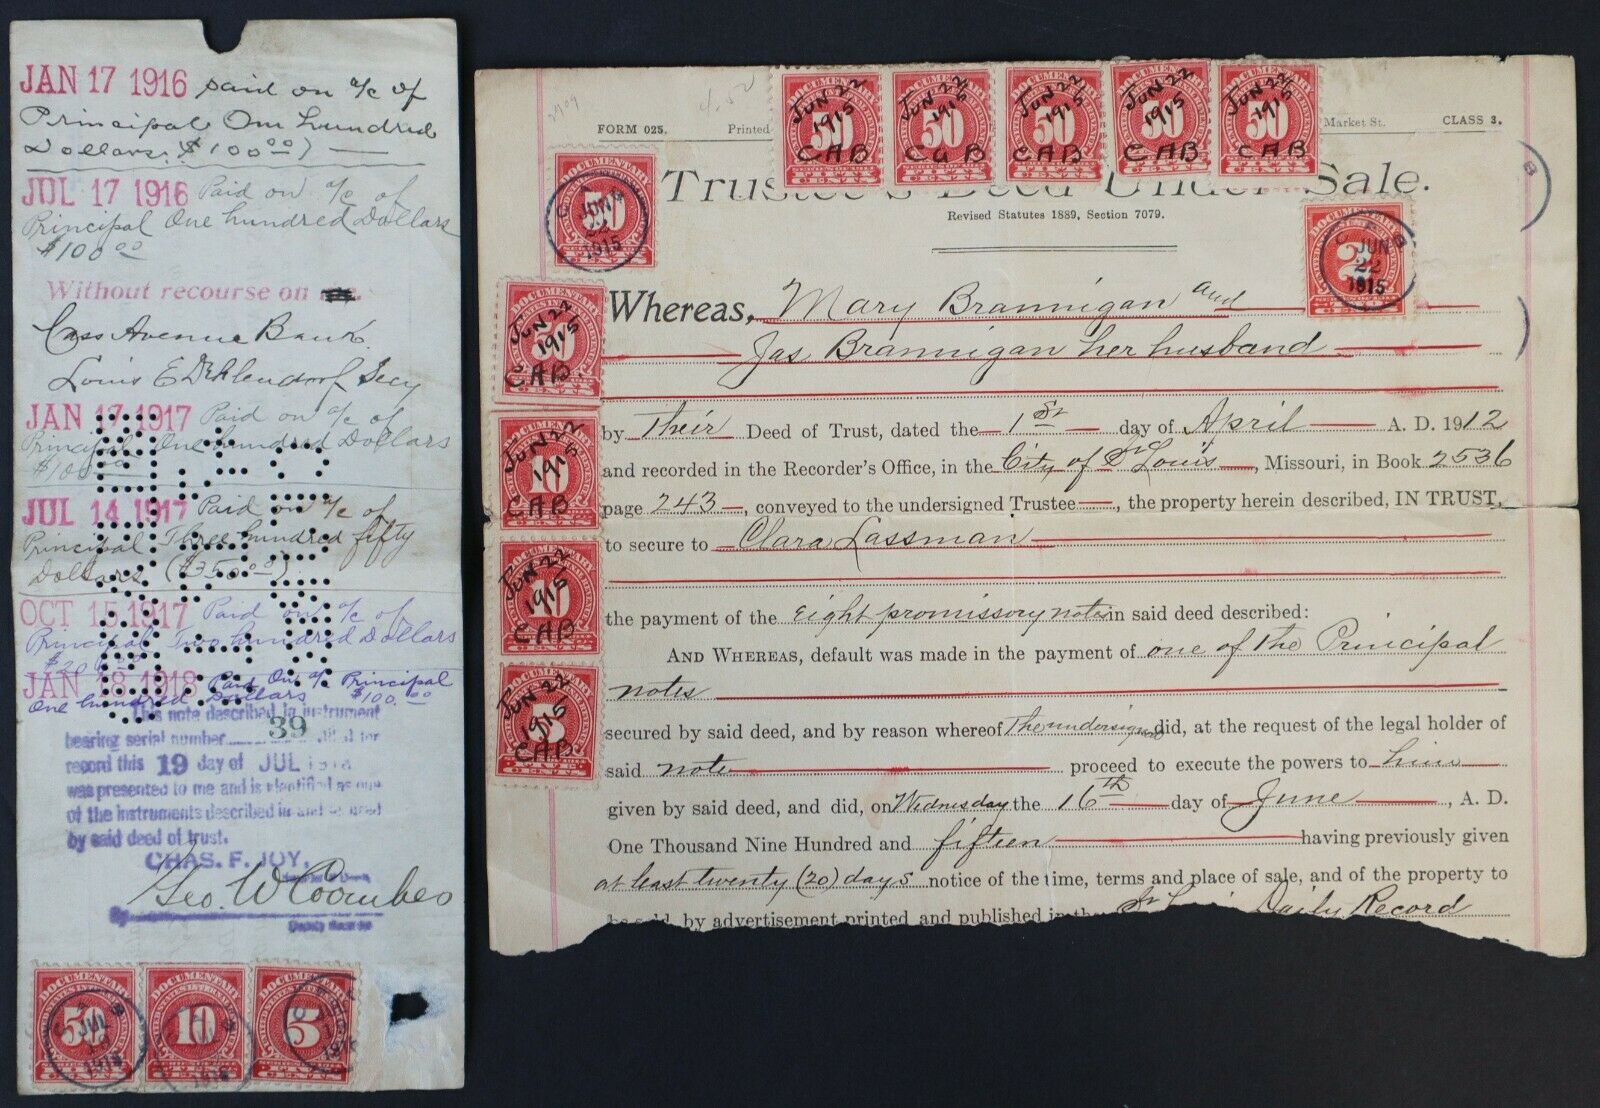 JAN 17 1916 paid on a/c of
Principal One hundred
Dollars $100 00)
JUL 17 1916 Paid on a/c of
Principal One hundred Dollars
$100 00
Without recourse on
Cass Avenue Bank
Louis E Secy
JAN 17 1917 Paid on a/c of
Principal One hundred Dollars
$100 00
JUL 14 1917 Paid on a/c of
Principal Three hundred fifty
Dollars ($350 00)
OCT 15 1917 Paid on a/c of
Principal Two hundred Dollars
JAN 18 1918 Paid On a/c Principal
One hundred Dollars $100.00
This note described in instrument
bearing serial number 39 filed for
record this 19 day of JUL
was presented to me and is identified as one
of the instruments described in and
by said deed of trust.
CHAS. F. JOY,
Geo. W Coombes
By
DOCUMENTARY DOCUMENTARY DOCUMENTARY
50 10 5
CENTS CENTS CENTS
FORM 025. Printed Market St. CLASS 3.
4.52
DOCUMENTARY
50 50 50 50 50
JUN 22 1915 CAB JUN 22 1915 CAB JUN 22 1915 CAB JUN 22 1915 CAB JUN 22 1915 CAB
Trustee's Deed Under Sale.
Revised Statutes 1889, Section 7079.
DOCUMENTARY 50 JUN 22 1915 CENTS
DOCUMENTARY 2 JUN 22 1915
Whereas, Mary Brannigan and
Jas Brannigan her husband
by Their Deed of Trust, dated the 1st day of April A. D. 1912
and recorded in the Recorder's Office, in the City of St Louis, Missouri, in Book 2536
page 243, conveyed to the undersigned Trustee, the property herein described, IN TRUST,
to secure to Clara Lassman
the payment of the eight promissory notes in said deed described:
AND WHEREAS, default was made in the payment of one of the Principal
notes
secured by said deed, and by reason whereof The undersigned did, at the request of the legal holder of
said note proceed to execute the powers to him
given by said deed, and did, on Wednesday the 16th day of June, A. D.
One Thousand Nine Hundred and fifteen having previously given
at least twenty (20) days notice of the time, terms and place of sale, and of the property to
be sold, by advertisement printed and published in the St Louis Daily Record
DOCUMENTARY 50 JUN 22 1915 CAB
DOCUMENTARY 10 JUN 22 1915 CAB
DOCUMENTARY 10 JUN 22 1915 CAB
DOCUMENTARY 5 JUN 22 1915 CAB